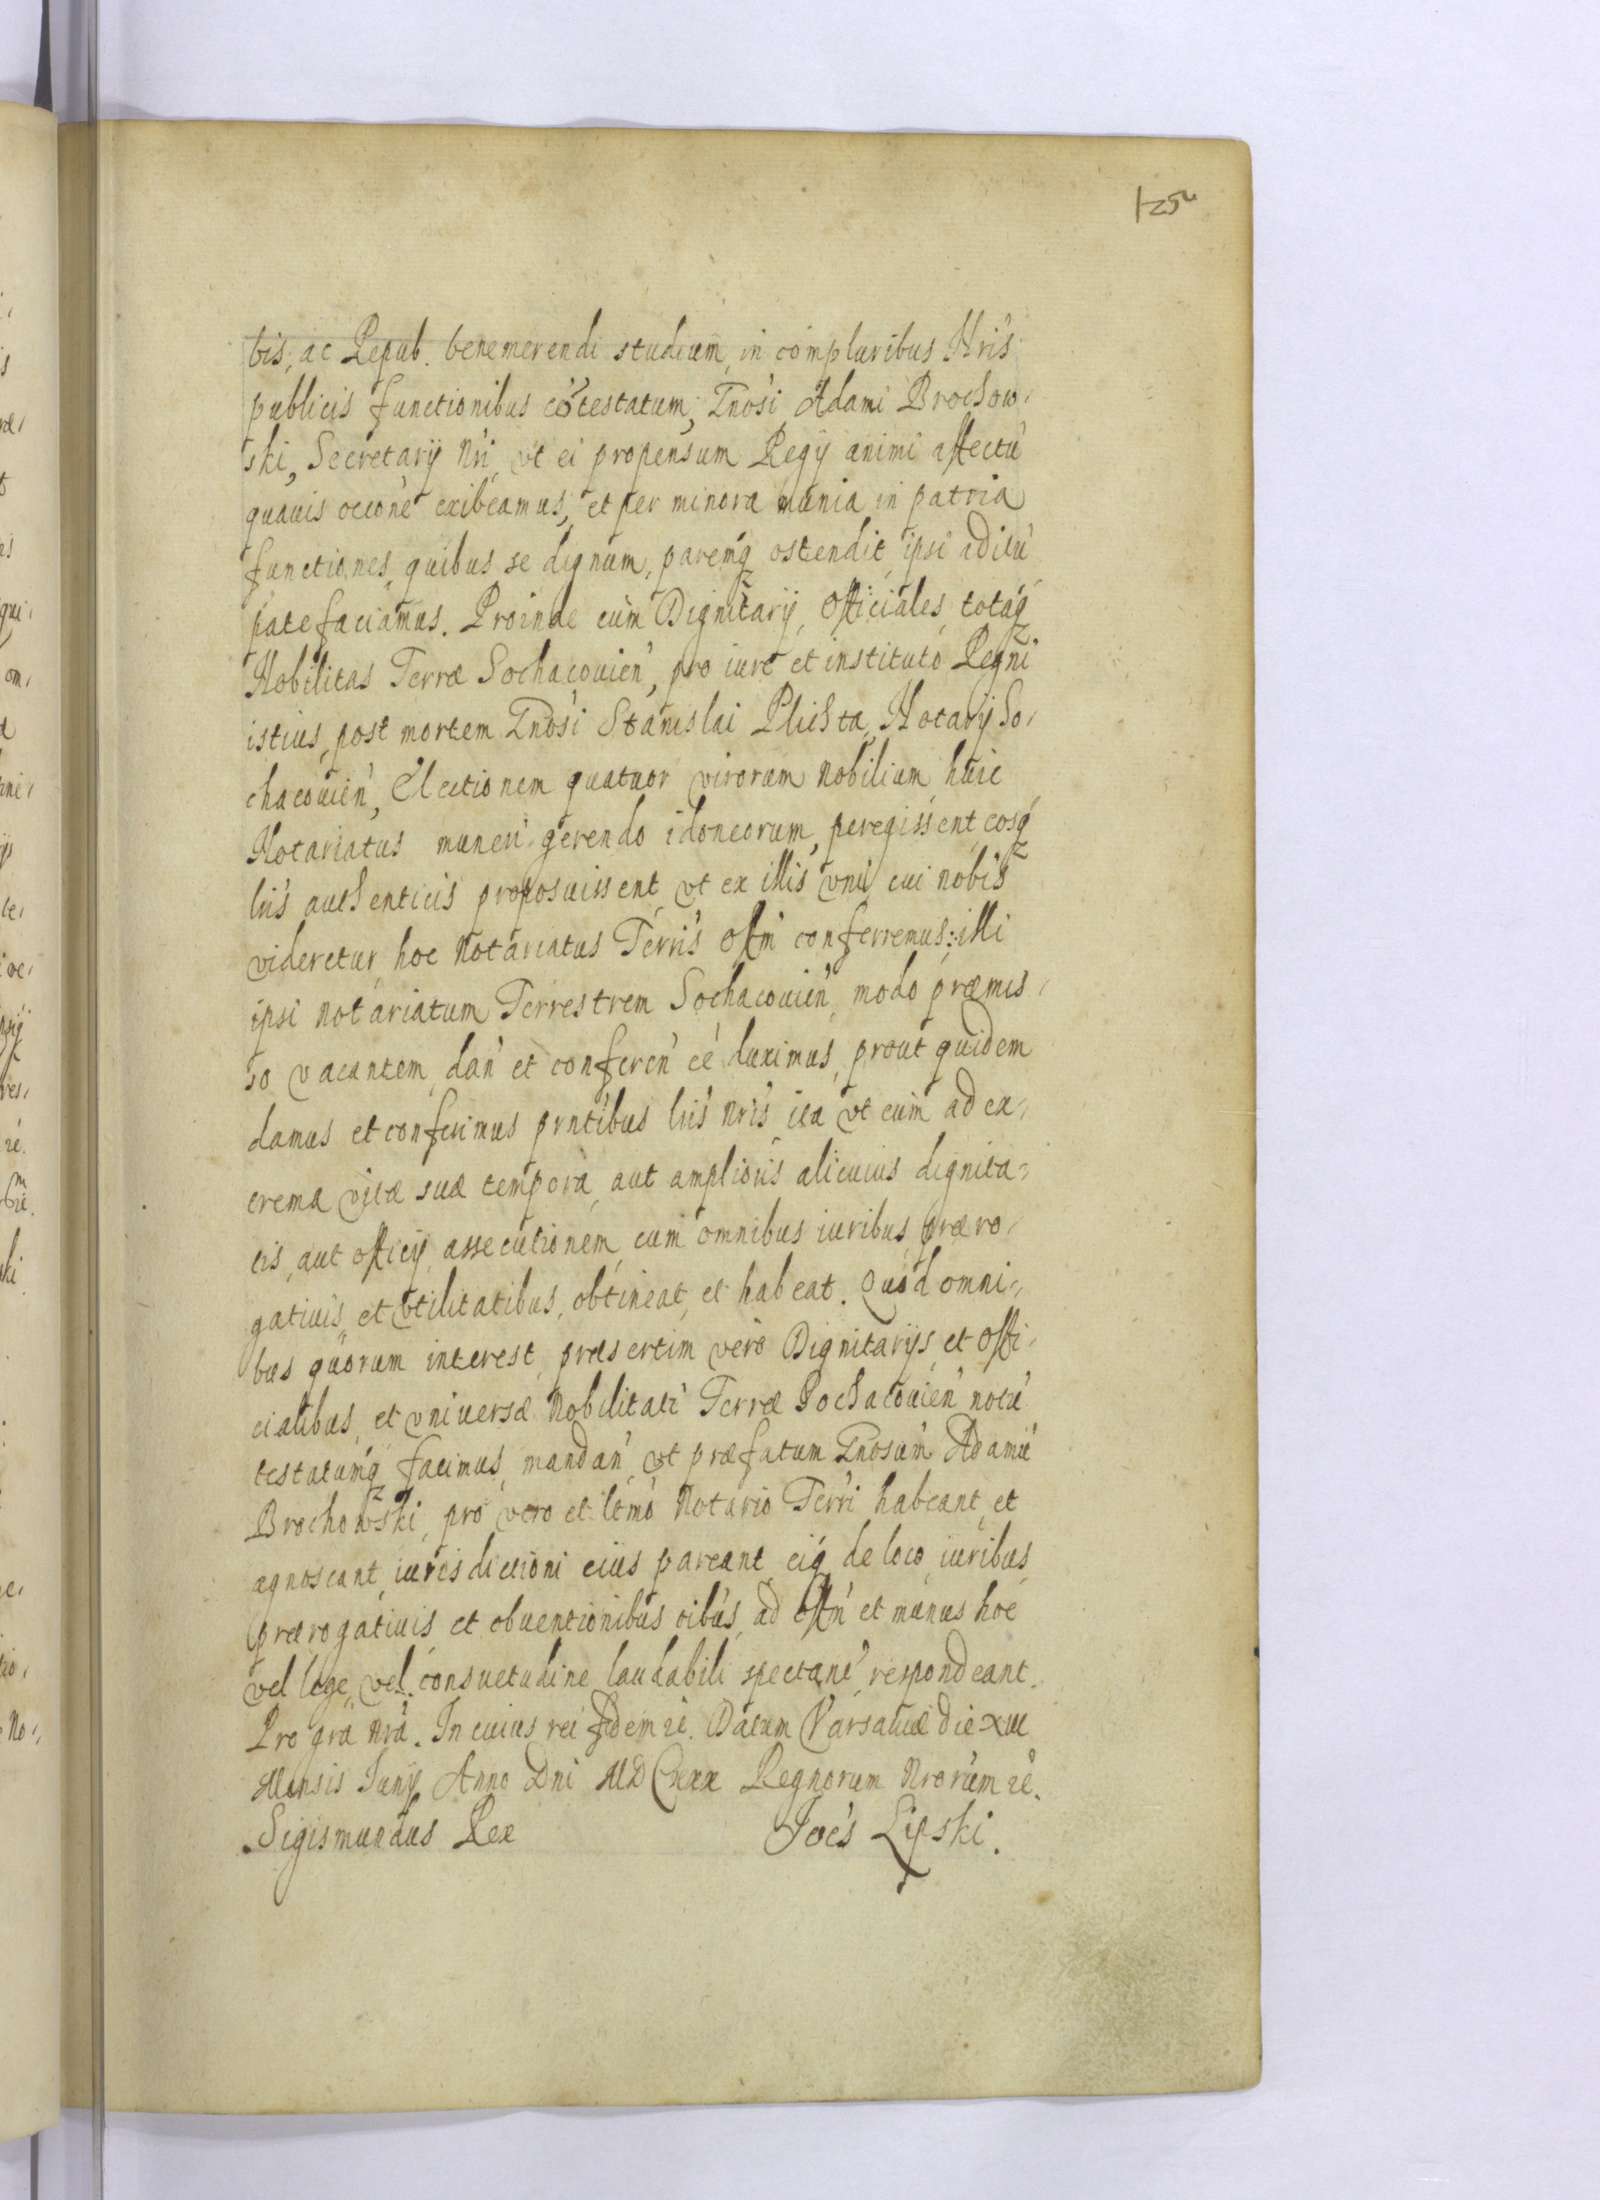 125
bis, ac Repub. benemerendi studium, in compluribus Nris
publicis functionibus cõtestatum, Gnosi Adami Brochow,
ski, Secretarij Nri, vt ei propensum Regij animi affectũ
quauis occone exibeamus, et per minora munia in patria
functiones, quibus se dignum, paremq ostendit, ipsi aditũ
patefaciamus. Proinde cum Dignitarij, Officiales, totaq
Nobilitas Terræ Sochacouien, pro iure et instituto Regni
istius, post mortem Gnosi Stanislai Plichta, Notarij So,
chacouien, Electionem quatuor virorum nobilium, huic
Notariatus muneri gerendo idoneorum, peregissent, eosq
lris authenticis proposuissent, vt ex illis vni, cui nobis
videretur, hoc Notariatus Terris offm conferremus: illi
ipsi notariatum Terrestrem Sochacouien, modo præmis,
so vacantem, dan et conferen eẽ duximus, prout quidem
damus et conferimus pntibus lris nris ita vt eum ad ex,
trema vitæ suæ tempora, aut amplioris alicuius dignita=
tis, aut officij assecutionem, cum omnibus iuribus, præro,
gatiuis, et vtilitatibus, obtineat, et habeat. Quod omni,
bus quorum interest, præsertim vero Dignitarijs, et offi,
cialibus, et vniuersæ Nobilitati Terræ Sochacouien notũ
testatumq facimus, mandan, vt præfatum Gnosum Adamũ
Brochowski, pro vero et ltmo Notario Terri habeant, et
agnoscant, iurisdictioni eius pareant, eiq de loco, iuribus,
prærogatiuis et obuentionibus oibus, ad offm et munus hoc
vel lege, vel consuetudine laudabili spectan, respondeant.
Pro gra nra. In cuius rei fidem ꝛc. Datum Varsauiæ die XVI
Mensis Iunij Anno Dni MDCXXX Regnorum Nrorum ꝛc.
Sigismundus Rex Joes Lipski.